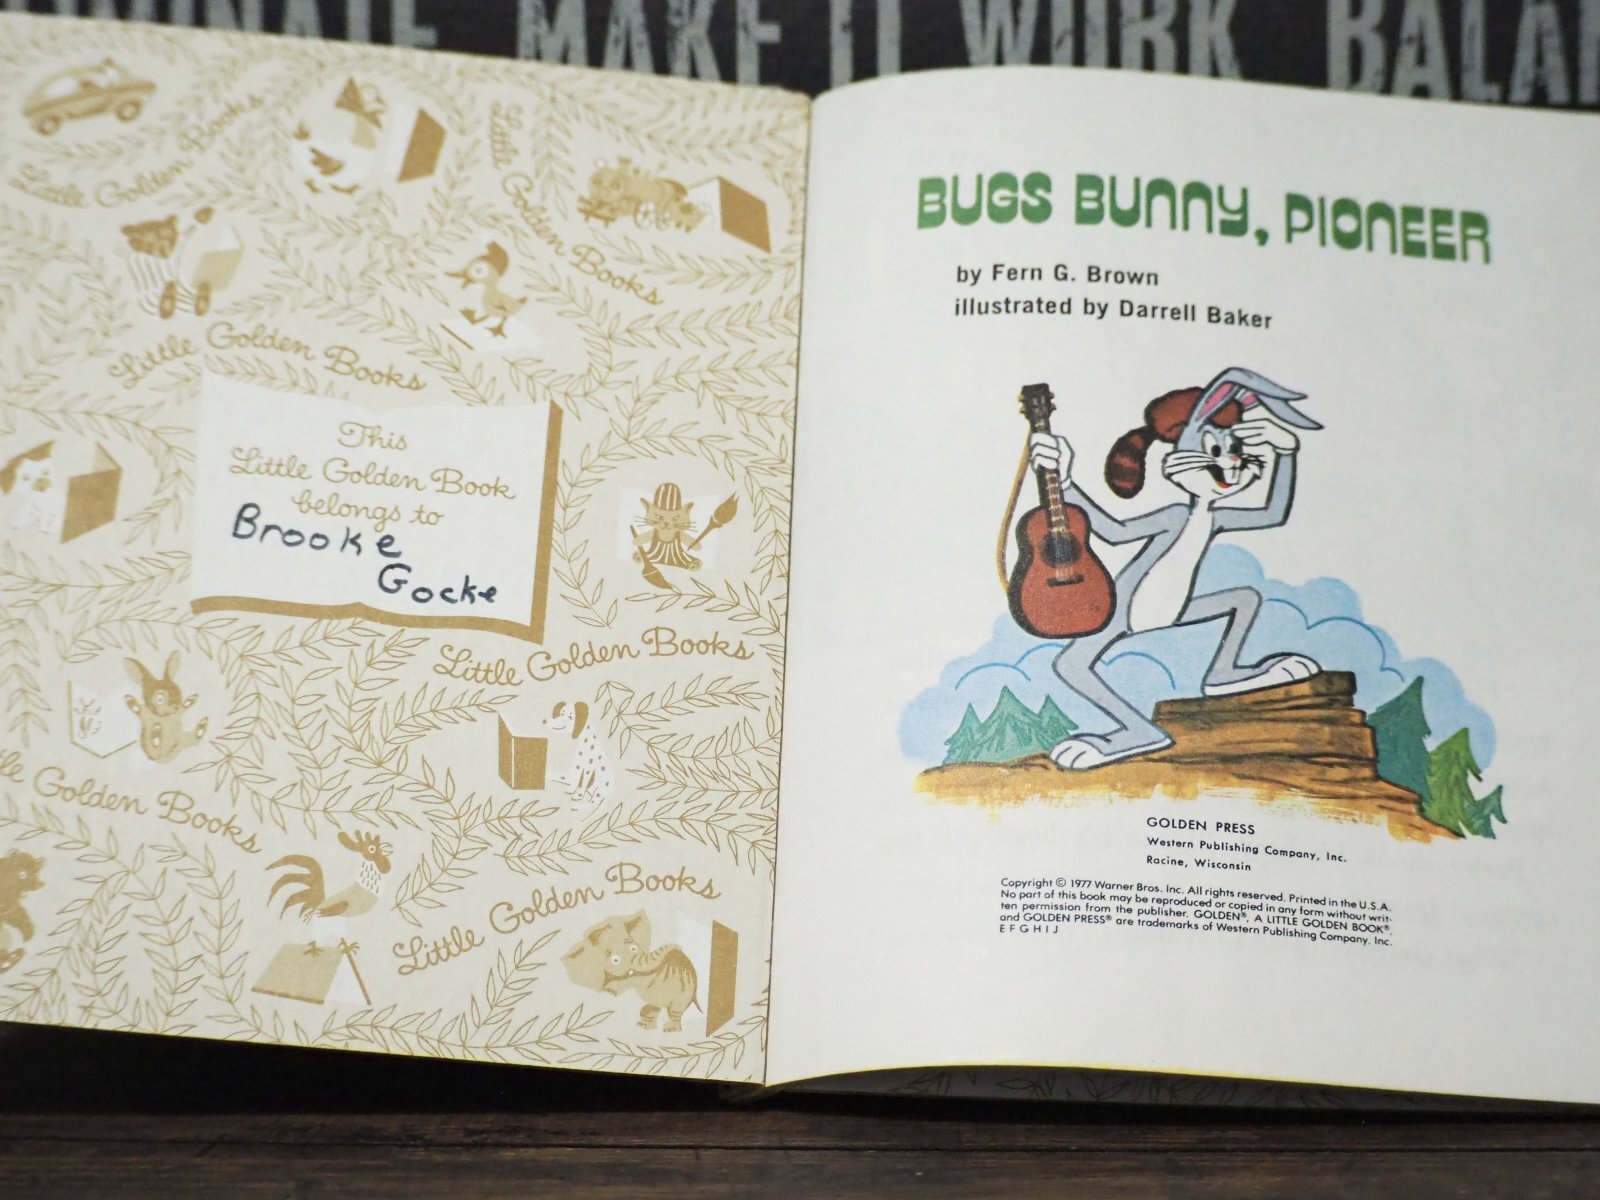 MAKE IT WORK
Little Golden Books
Little Golden Books
Little Golden Books
This
Little Golden Book
belongs to
Brooke
Gocke
Little Golden Books
Golden Books
Little Golden Books
BUGS BUNNY, PIONEER
by Fern G. Brown
illustrated by Darrell Baker
GOLDEN PRESS
Western Publishing Company, Inc.
Racine, Wisconsin
Copyright © 1977 Warner Bros. Inc. All rights reserved. Printed in the U.S.A.
No part of this book may be reproduced or copied in any form without writ-
ten permission from the publisher. GOLDEN®, A LITTLE GOLDEN BOOK®,
and GOLDEN PRESS® are trademarks of Western Publishing Company, Inc.
E F G H I J